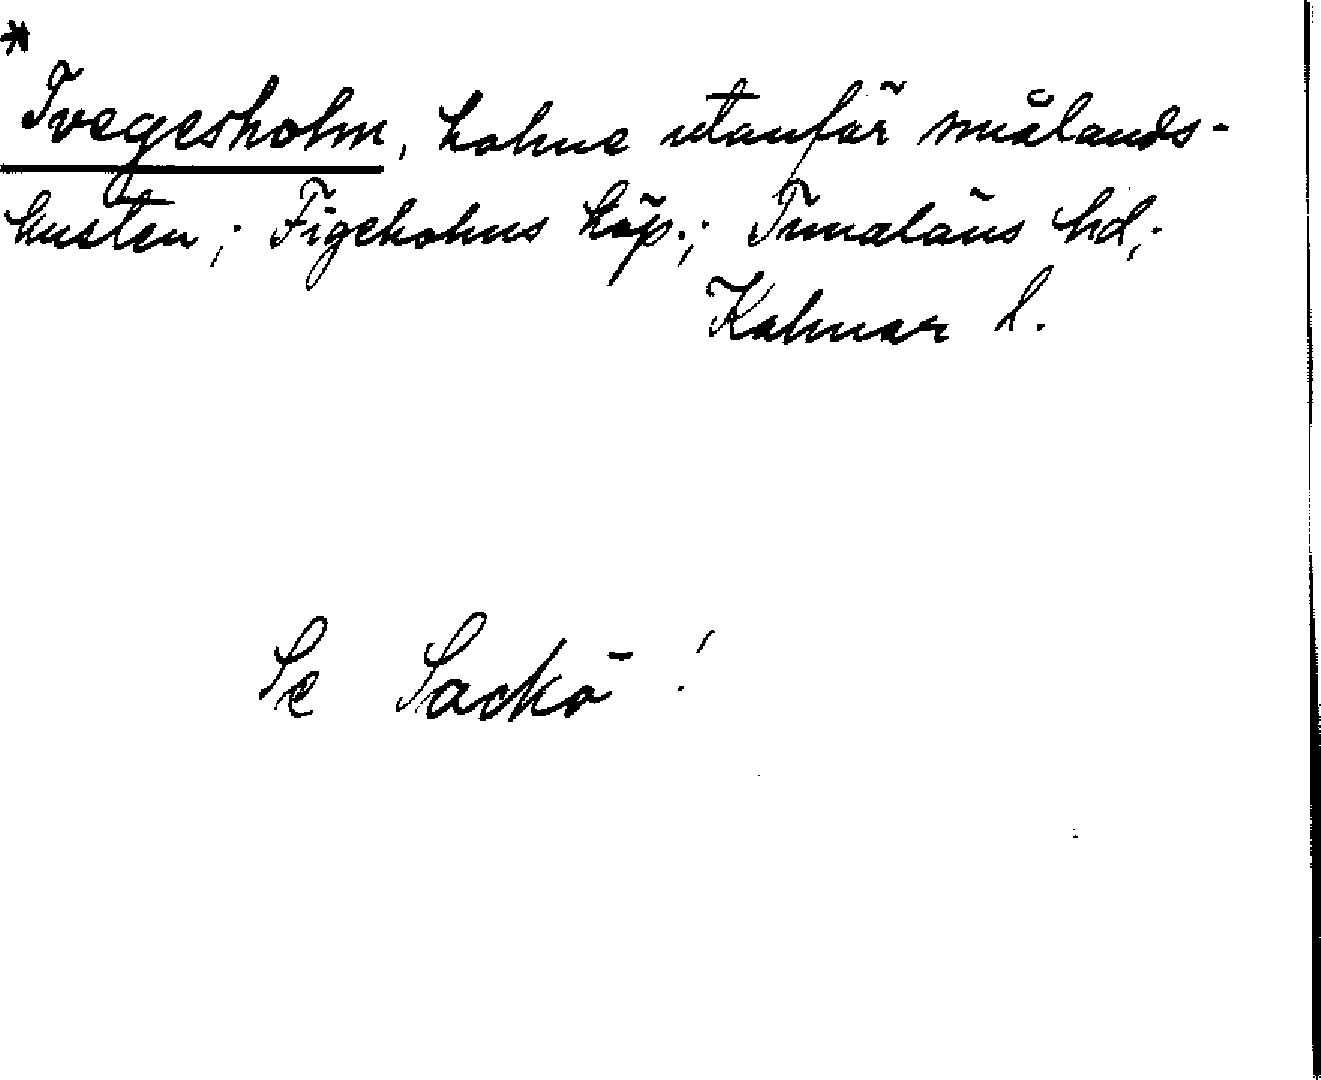 *
Tvegesholm, holme utanför smålands-
kusten; Figeholms köp.; Tunaläns hd;
Kalmar l.
Se Sackö!